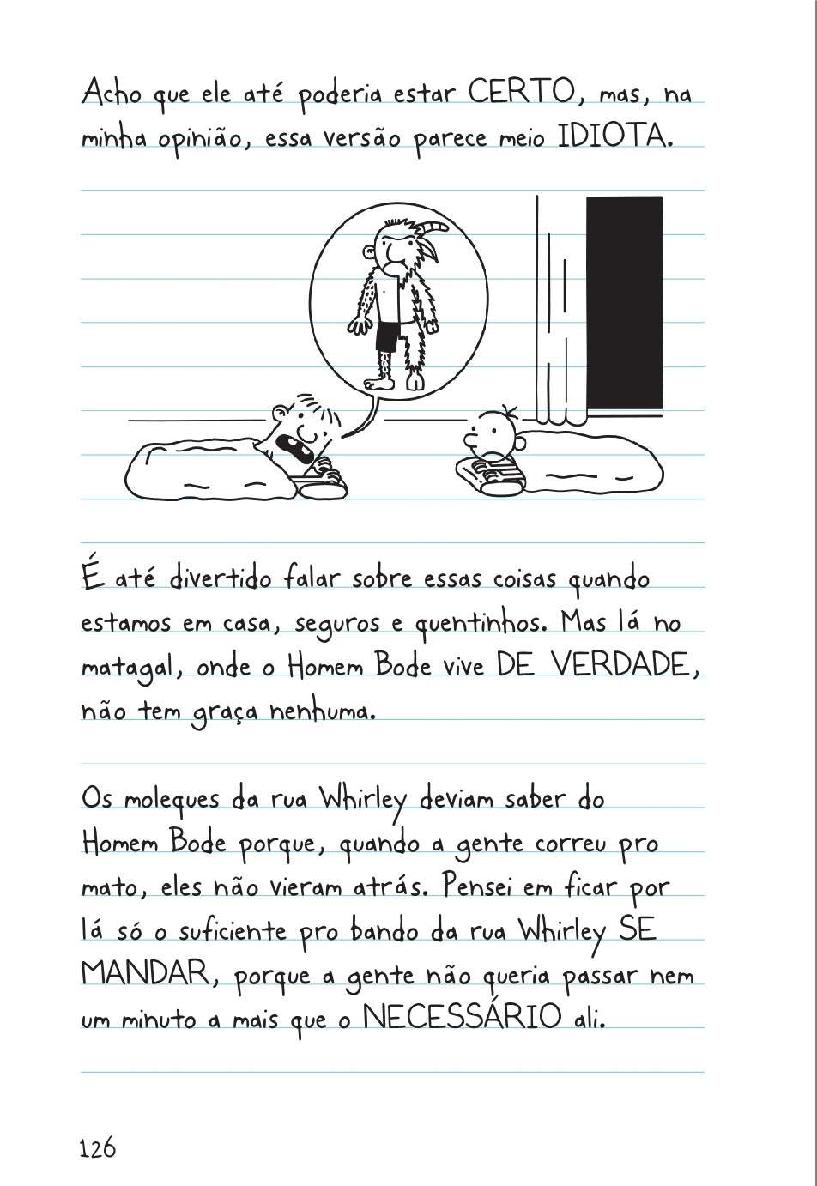 Acho que ele até poderia estar CERTO, mas, na
minha opinião, essa versão parece meio IDIOTA.
É até divertido falar sobre essas coisas quando
estamos em casa, seguros e quentinhos. Mas lá no
matagal, onde o Homem Bode vive DE VERDADE,
não tem graça nenhuma.
Os moleques da rua Whirley deviam saber do
Homem Bode porque, quando a gente correu pro
mato, eles não vieram atrás. Pensei em ficar por
lá só o suficiente pro bando da rua Whirley SE
MANDAR, porque a gente não queria passar nem
um minuto a mais que o NECESSÁRIO ali.
126